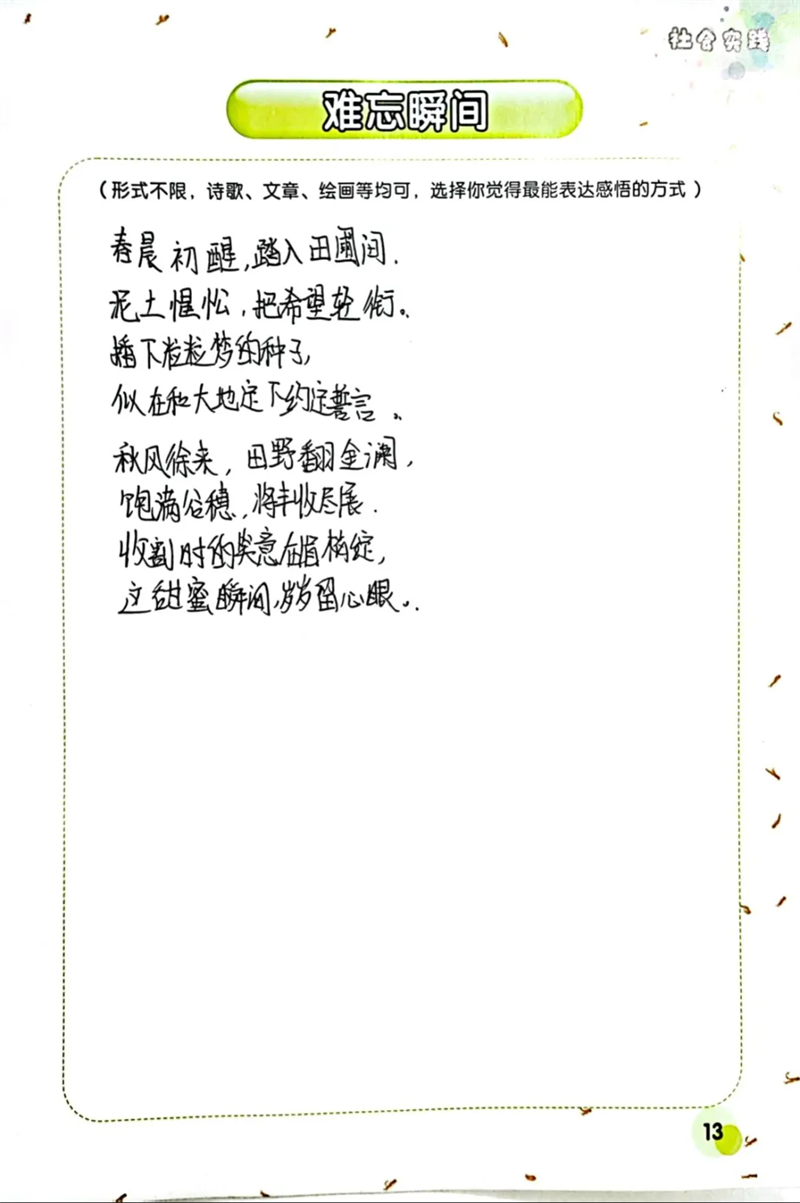 社会实践
难忘瞬间
(形式不限，诗歌、文章、绘画等均可，选择你觉得最能表达感悟的方式)
春晨初醒，踏入田圃间.
泥土惺忪，把希望轻衔。
播下粒粒梦的种子，
似在和大地定下约定誓言。
秋风徐来，田野翻金澜，
饱满谷穗，将丰收尽展.
收割时的笑意在眉梢绽，
这甜蜜瞬间，岁岁留心眼。.
13